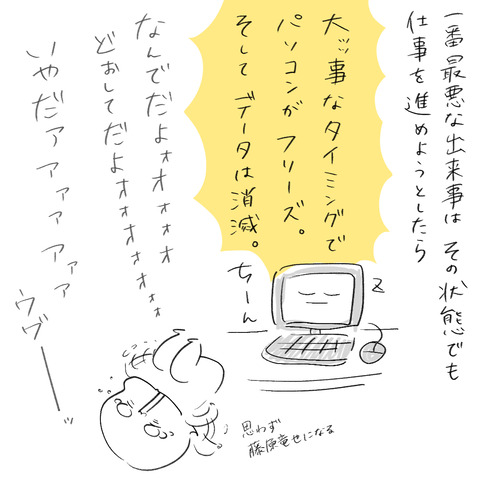 一番最悪な出来事は その状態でも
仕事を進めようとしたら
大ッッ事なタイミングで
パソコンが フリーズ。
そして データは消滅。
ちーん
z
なんでだよォォォォォ
どおしてだよォォォォォォ
いやだァァァァァァァ
ウヴーーッ
思わず
藤原竜也になる